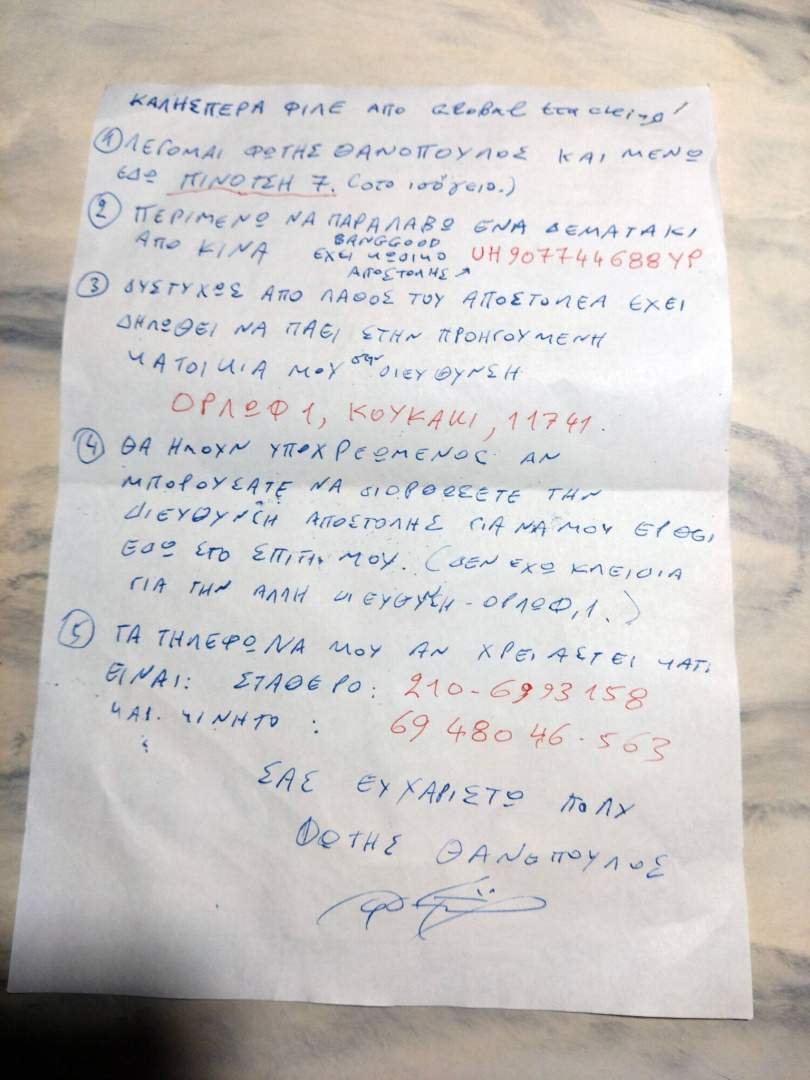 ΚΑΛΗΣΠΕΡΑ ΦΙΛΕ ΑΠΟ Global tracking!
① ΛΕΓΟΜΑΙ ΦΩΤΗΣ ΘΑΝΟΠΟΥΛΟΣ ΚΑΙ ΜΕΝΩ
ΕΔΩ ΠΙΝΟΤΣΗ 7. (στο ισόγειο.)
② ΠΕΡΙΜΕΝΩ ΝΑ ΠΑΡΑΛΑΒΩ ΕΝΑ ΔΕΜΑΤΑΚΙ
ΑΠΟ ΚΙΝΑ BANGGOOD
ΕΧΕΙ ΚΩΔΙΚΟ UH907744688YP
ΑΠΟΣΤΟΛΗΣ
③ ΔΥΣΤΥΧΩΣ ΑΠΟ ΛΑΘΟΣ ΤΟΥ ΑΠΟΣΤΟΛΕΑ ΕΧΕΙ
ΔΗΛΩΘΕΙ ΝΑ ΠΑΕΙ ΣΤΗΝ ΠΡΟΗΓΟΥΜΕΝΗ
ΚΑΤΟΙΚΙΑ ΜΟΥ στην ΔΙΕΥΘΥΝΣΗ
ΟΡΛΩΦ 1, ΚΟΥΚΑΚΙ, 11741.
④ ΘΑ ΗΜΟΥΝ ΥΠΟΧΡΕΩΜΕΝΟΣ ΑΝ
ΜΠΟΡΟΥΣΑΤΕ ΝΑ ΔΙΟΡΘΩΣΕΤΕ ΤΗΝ
ΔΙΕΥΘΥΝΣΗ ΑΠΟΣΤΟΛΗΣ ΓΙΑ ΝΑ ΜΟΥ ΕΡΘΕΙ
ΕΔΩ ΣΤΟ ΣΠΙΤΙ ΜΟΥ. (ΔΕΝ ΕΧΩ ΚΛΕΙΔΙΑ
ΓΙΑ ΤΗΝ ΑΛΛΗ ΔΙΕΥΘΥΝΣΗ - ΟΡΛΩΦ, 1.)
⑤ ΤΑ ΤΗΛΕΦΩΝΑ ΜΟΥ ΑΝ ΧΡΕΙΑΣΤΕΙ ΚΑΤΙ
ΕΙΝΑΙ: ΣΤΑΘΕΡΟ: 210-6993158
ΚΑΙ ΚΙΝΗΤΟ : 6948046.563
ΣΑΣ ΕΥΧΑΡΙΣΤΩ ΠΟΛΥ
ΦΩΤΗΣ ΘΑΝΟΠΟΥΛΟΣ